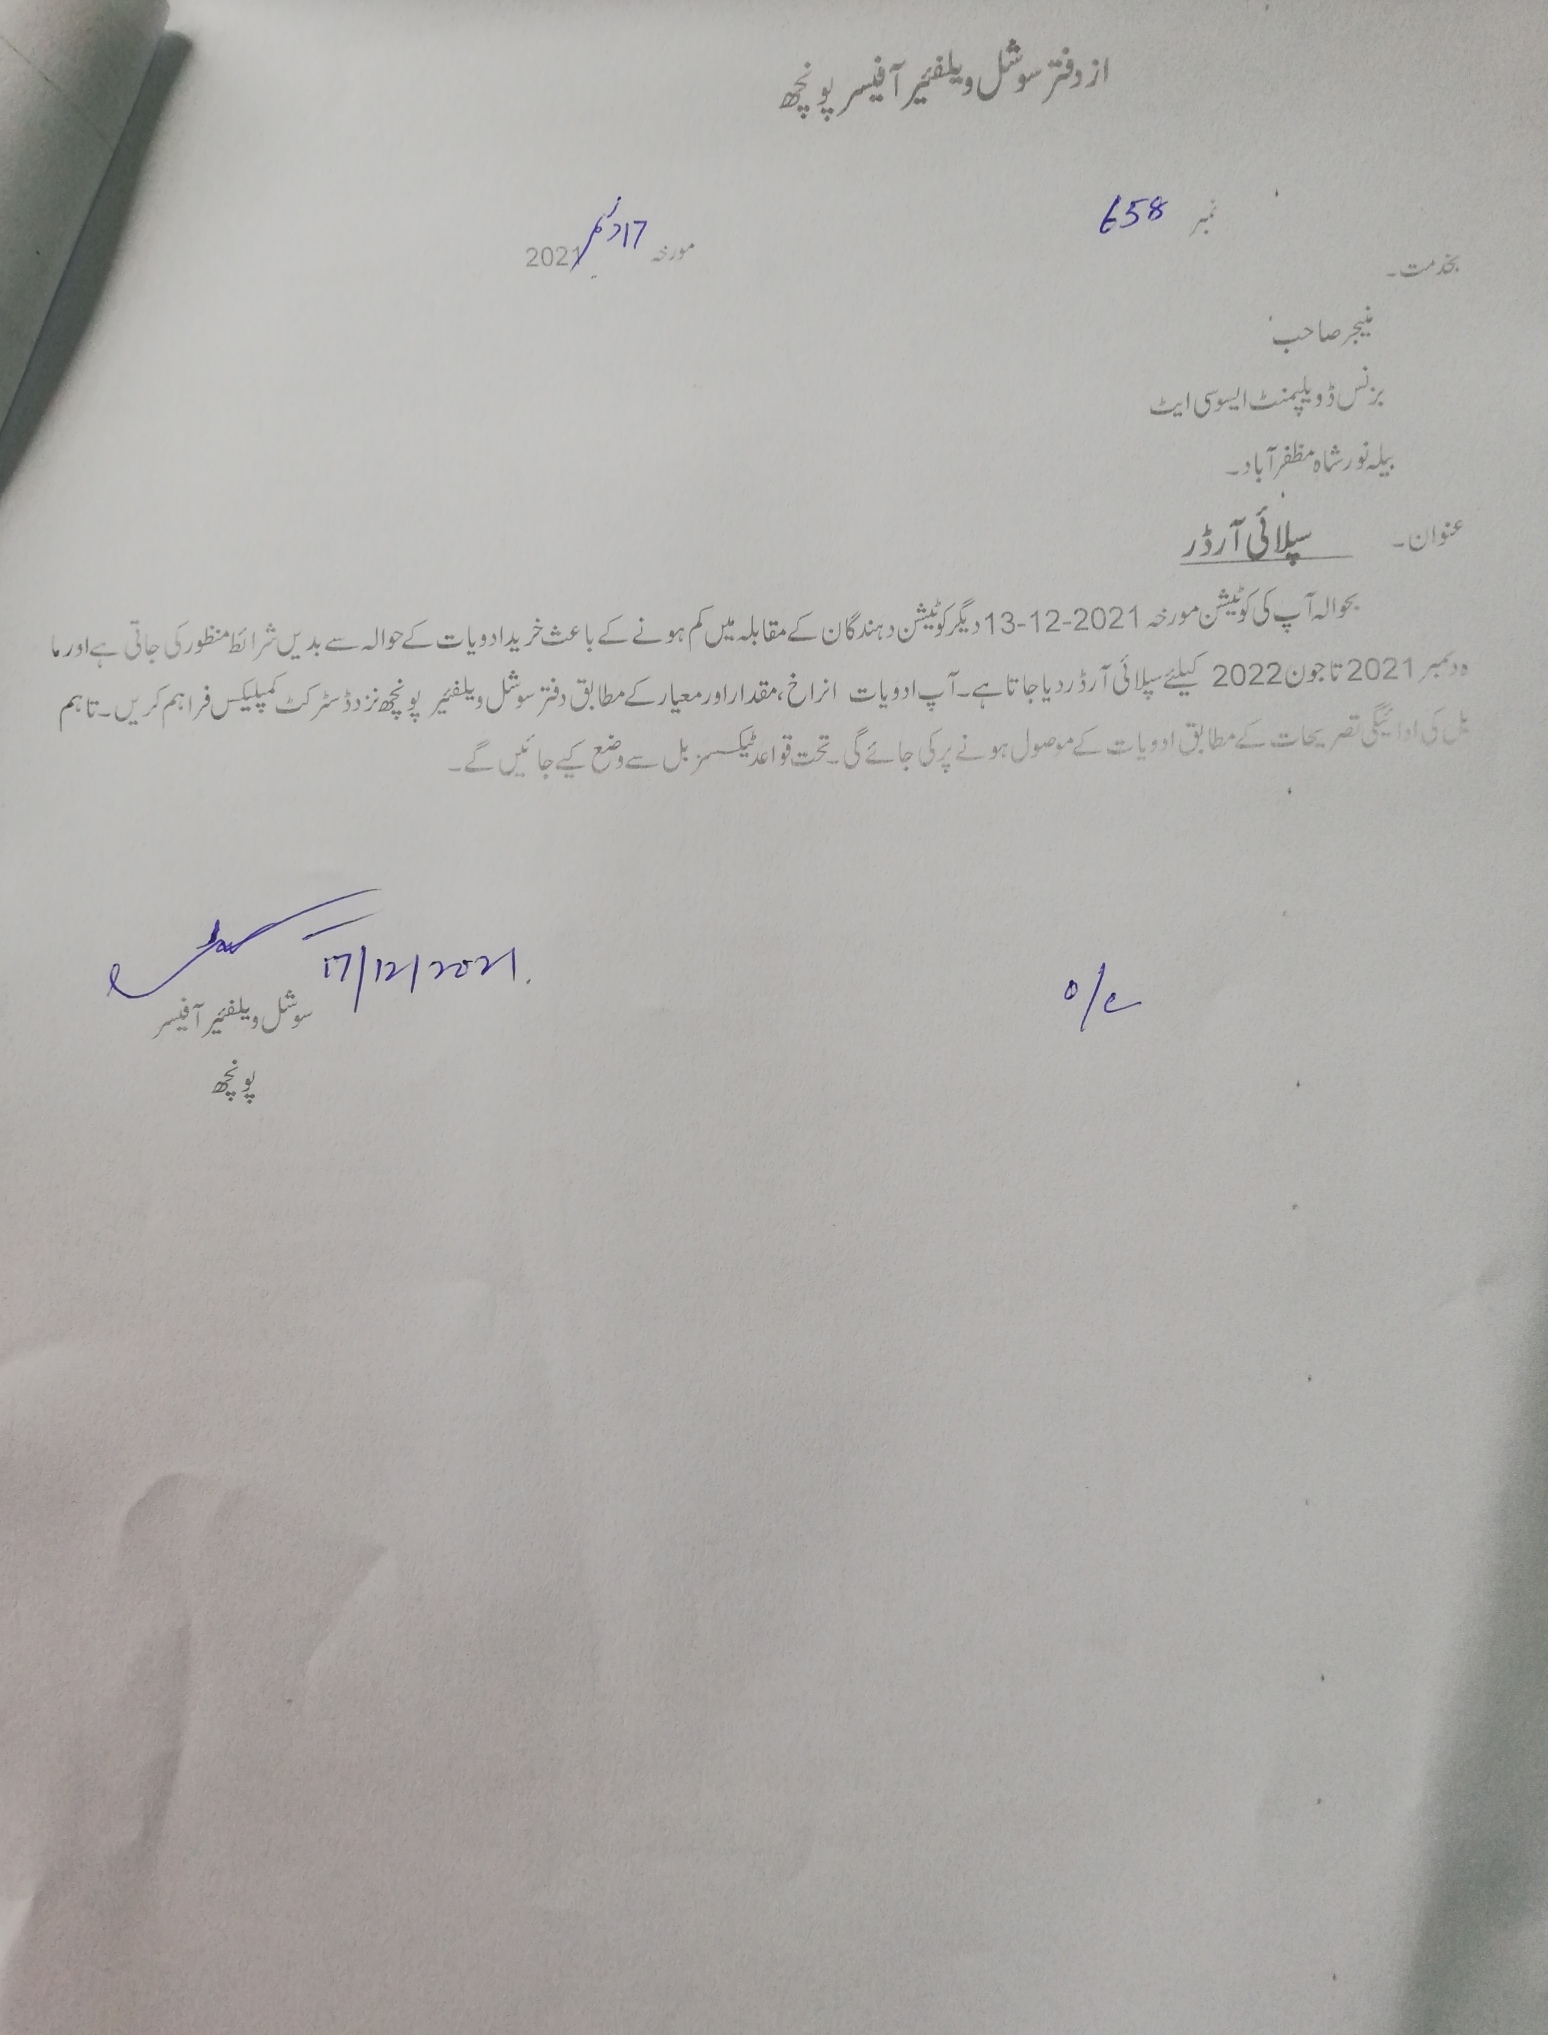 از دفتر سوشل ویلفئیر آفیسر پونچھ
نمبر 658
مورخہ 17 دسمبر 2021
بخدمت۔
منیجر صاحب
بزنس ڈویلپمنٹ ایسوسی ایٹ
بیلہ نور شاہ مظفر آباد۔
عنوان۔ سپلائی آرڈر
بحوالہ آپ کی کوٹیشن مورخہ 13-12-2021 دیگر کوٹیشن دہندگان کے مقابلہ میں کم ہونے کے باعث خرید ادویات کے حوالہ سے بدیں شرائط منظور کی جاتی ہے اور ما
ہ دسمبر 2021 تا جون 2022 کیلئے سپلائی آرڈر دیا جاتا ہے۔ آپ ادویات انراخ، مقدار اور معیار کے مطابق دفتر سوشل ویلفئیر پونچھ نزد ڈسٹرکٹ کمپلیکس فراہم کریں۔ تاہم
بل کی ادائیگی تصریحات کے مطابق ادویات کے موصول ہونے پر کی جائے گی۔ تحت قواعد ٹیکسز بل سے وضع کیے جائیں گے۔
17/12/2021.
o/c
سوشل ویلفئیر آفیسر
پونچھ